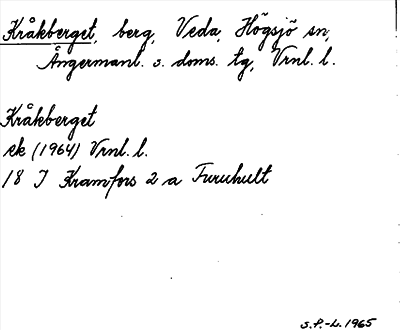 Kråkberget, berg, Veda, Högsjö sn,
Ångermanl. s. doms. tg, Vrnl. l.
Kråkberget
ek (1964) Vrnl. l.
18 I Kramfors 2 a Furuhult
S.P.-L. 1965